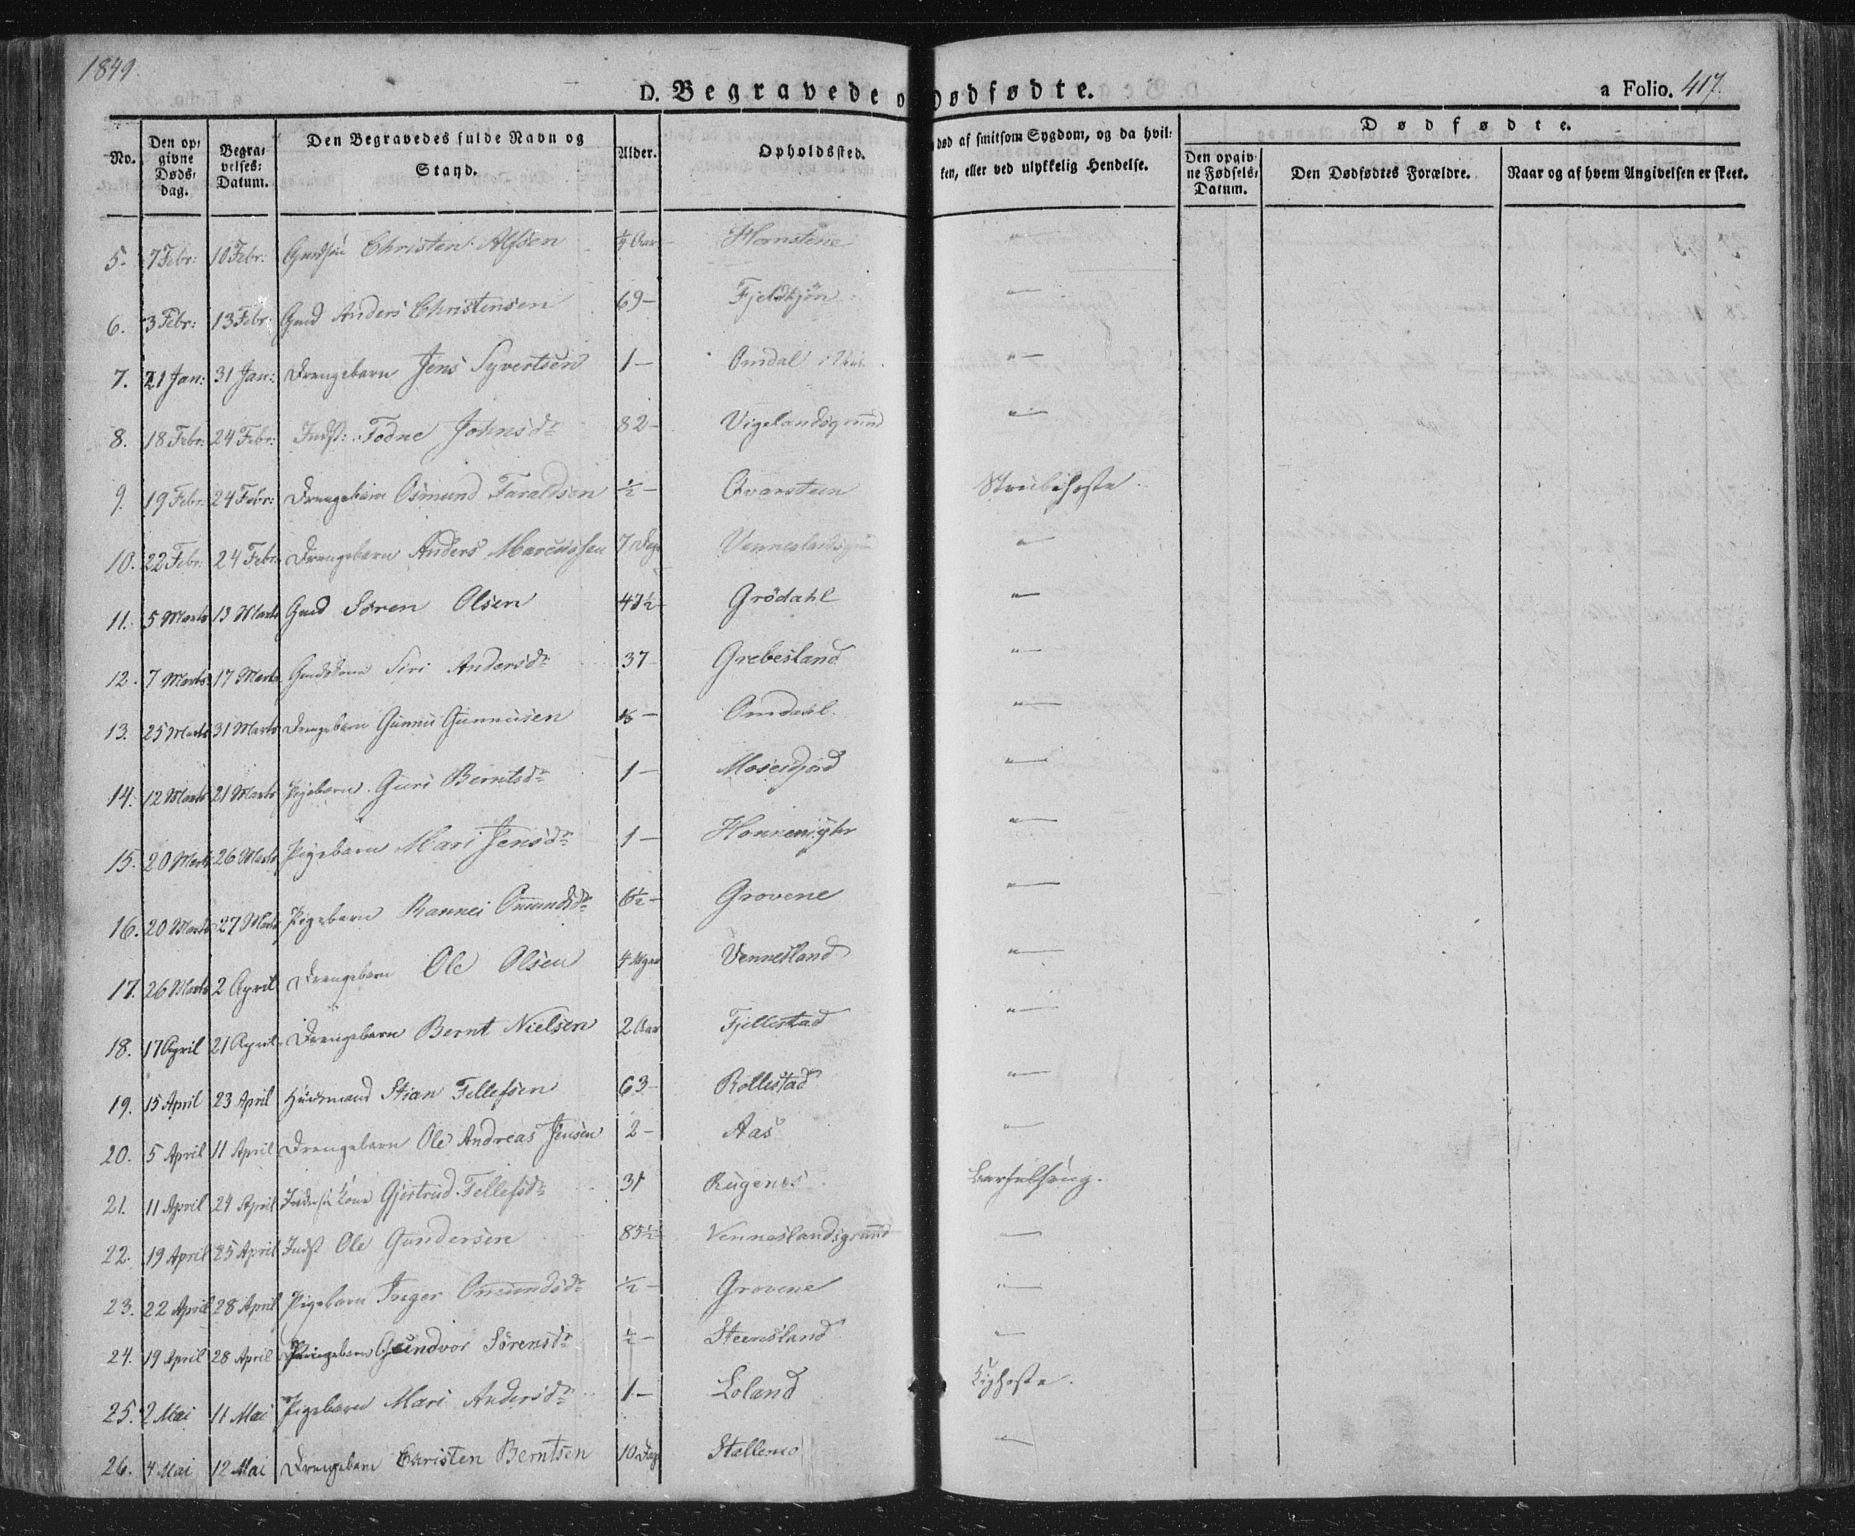 1849.
D. Begravede o Dødfødte.
a Folio. 417.
No. | Den opgivne Dødsdag. | Begravelses-Datum. | Den Begravedes fulde Navn og Stand. | Alder. | Opholdssted. | død af smitsom Sygdom, og da hvilken, eller ved ulykkelig Hendelse. | Dødfødte. | Den opgivne Fødsels-Datum. | Den Dødfødtes Forældre. | Naar og af hvem Angivelsen er skeet.
5. 7 Febr: 10 Febr: Christen Alfsen ¼ Aar Homstene "
6. 3 Febr: 13 Febr: Gmd Anders Christensen 69 — Fjeldkjøn "
7. 21 Jan: 31 Jan: Drengebarn Jens Syvertsen 1 — Omdal "
8. 18 Febr: 24 Febr: Indst: Todne Johnsdr 82 — Vigelandsgrund "
9. 19 Febr: 24 Febr: Drengebarn Osmund Taraldsen ½ — Qvarsteen Strubehoste.
10. 22 Febr: 24 Febr: Drengebarn Anders Marcussen 7 Dage "
11. 5 Marts 13 Marts Gmd Søren Olsen 47½ Grödahl "
12. 7 Marts 17 Marts Gmdskone Siri Andersdr 37 Grebesland "
13. 25 Marts 31 Marts Drengebarn Gunnu Gunnusen — Omdahl. "
14. 12 Marts 21 Marts Pigebarn Guri Berntsdr 1 — Moseidjord "
15. 20 Marts 26 Marts Pigebarn Mari Jensdr 1 — "
16. 20 Marts 27 Marts Pigebarn Rannei Omundsdr 6½ — Grovene "
17. 26 Marts 2 April Drengebarn Ole Olsen 4 Uger Vennesland "
18. 17 April 21 April Drengebarn Bernt Nielsen 2 Aar Fjellestad "
19. 15 April 23 April Huusmand Stian Tellefsen 63 Rollestad "
20. 5 April 11 April Drengebarn Ole Andreas Jensen 2 — Aas "
21. 11 April 24 April Kone Gjertrud Tellefsdr 31 Rugenes Barselseng.
22. 19 April 25 April Indst Ole Gundersen 85½ Venneslandsgrund "
23. 22 April 28 April Pigebarn Inger Omundsdr ½ — Grovene "
24. 19 April 28 April Pigebarn Gundvor Sörensdr ½ — Steensland "
25. 2 Mai 11 Mai Pigebarn Mari Andersdr 1 — Loland Kighoste.
26. 4 Mai 12 Mai Drengebarn Christen Berntsen 10 Dage Stallemo "